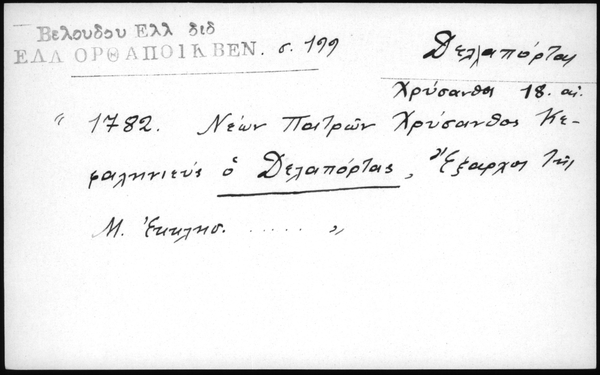 Βελουδου Ελλ διδ
ΕΛΛ ΟΡΘ ΑΠΟΙΚ ΒΕΝ. σ. 199
Δελλαπόρτας
Χρύσανθος 18. αἰ.
" 1782. Νέων Πατρῶν Χρύσανθος Κε-
φαληνιεύς ὁ Δελαπόρτας, Ἔξαρχος τῆς
Μ. Ἐκκλησ. ..... "